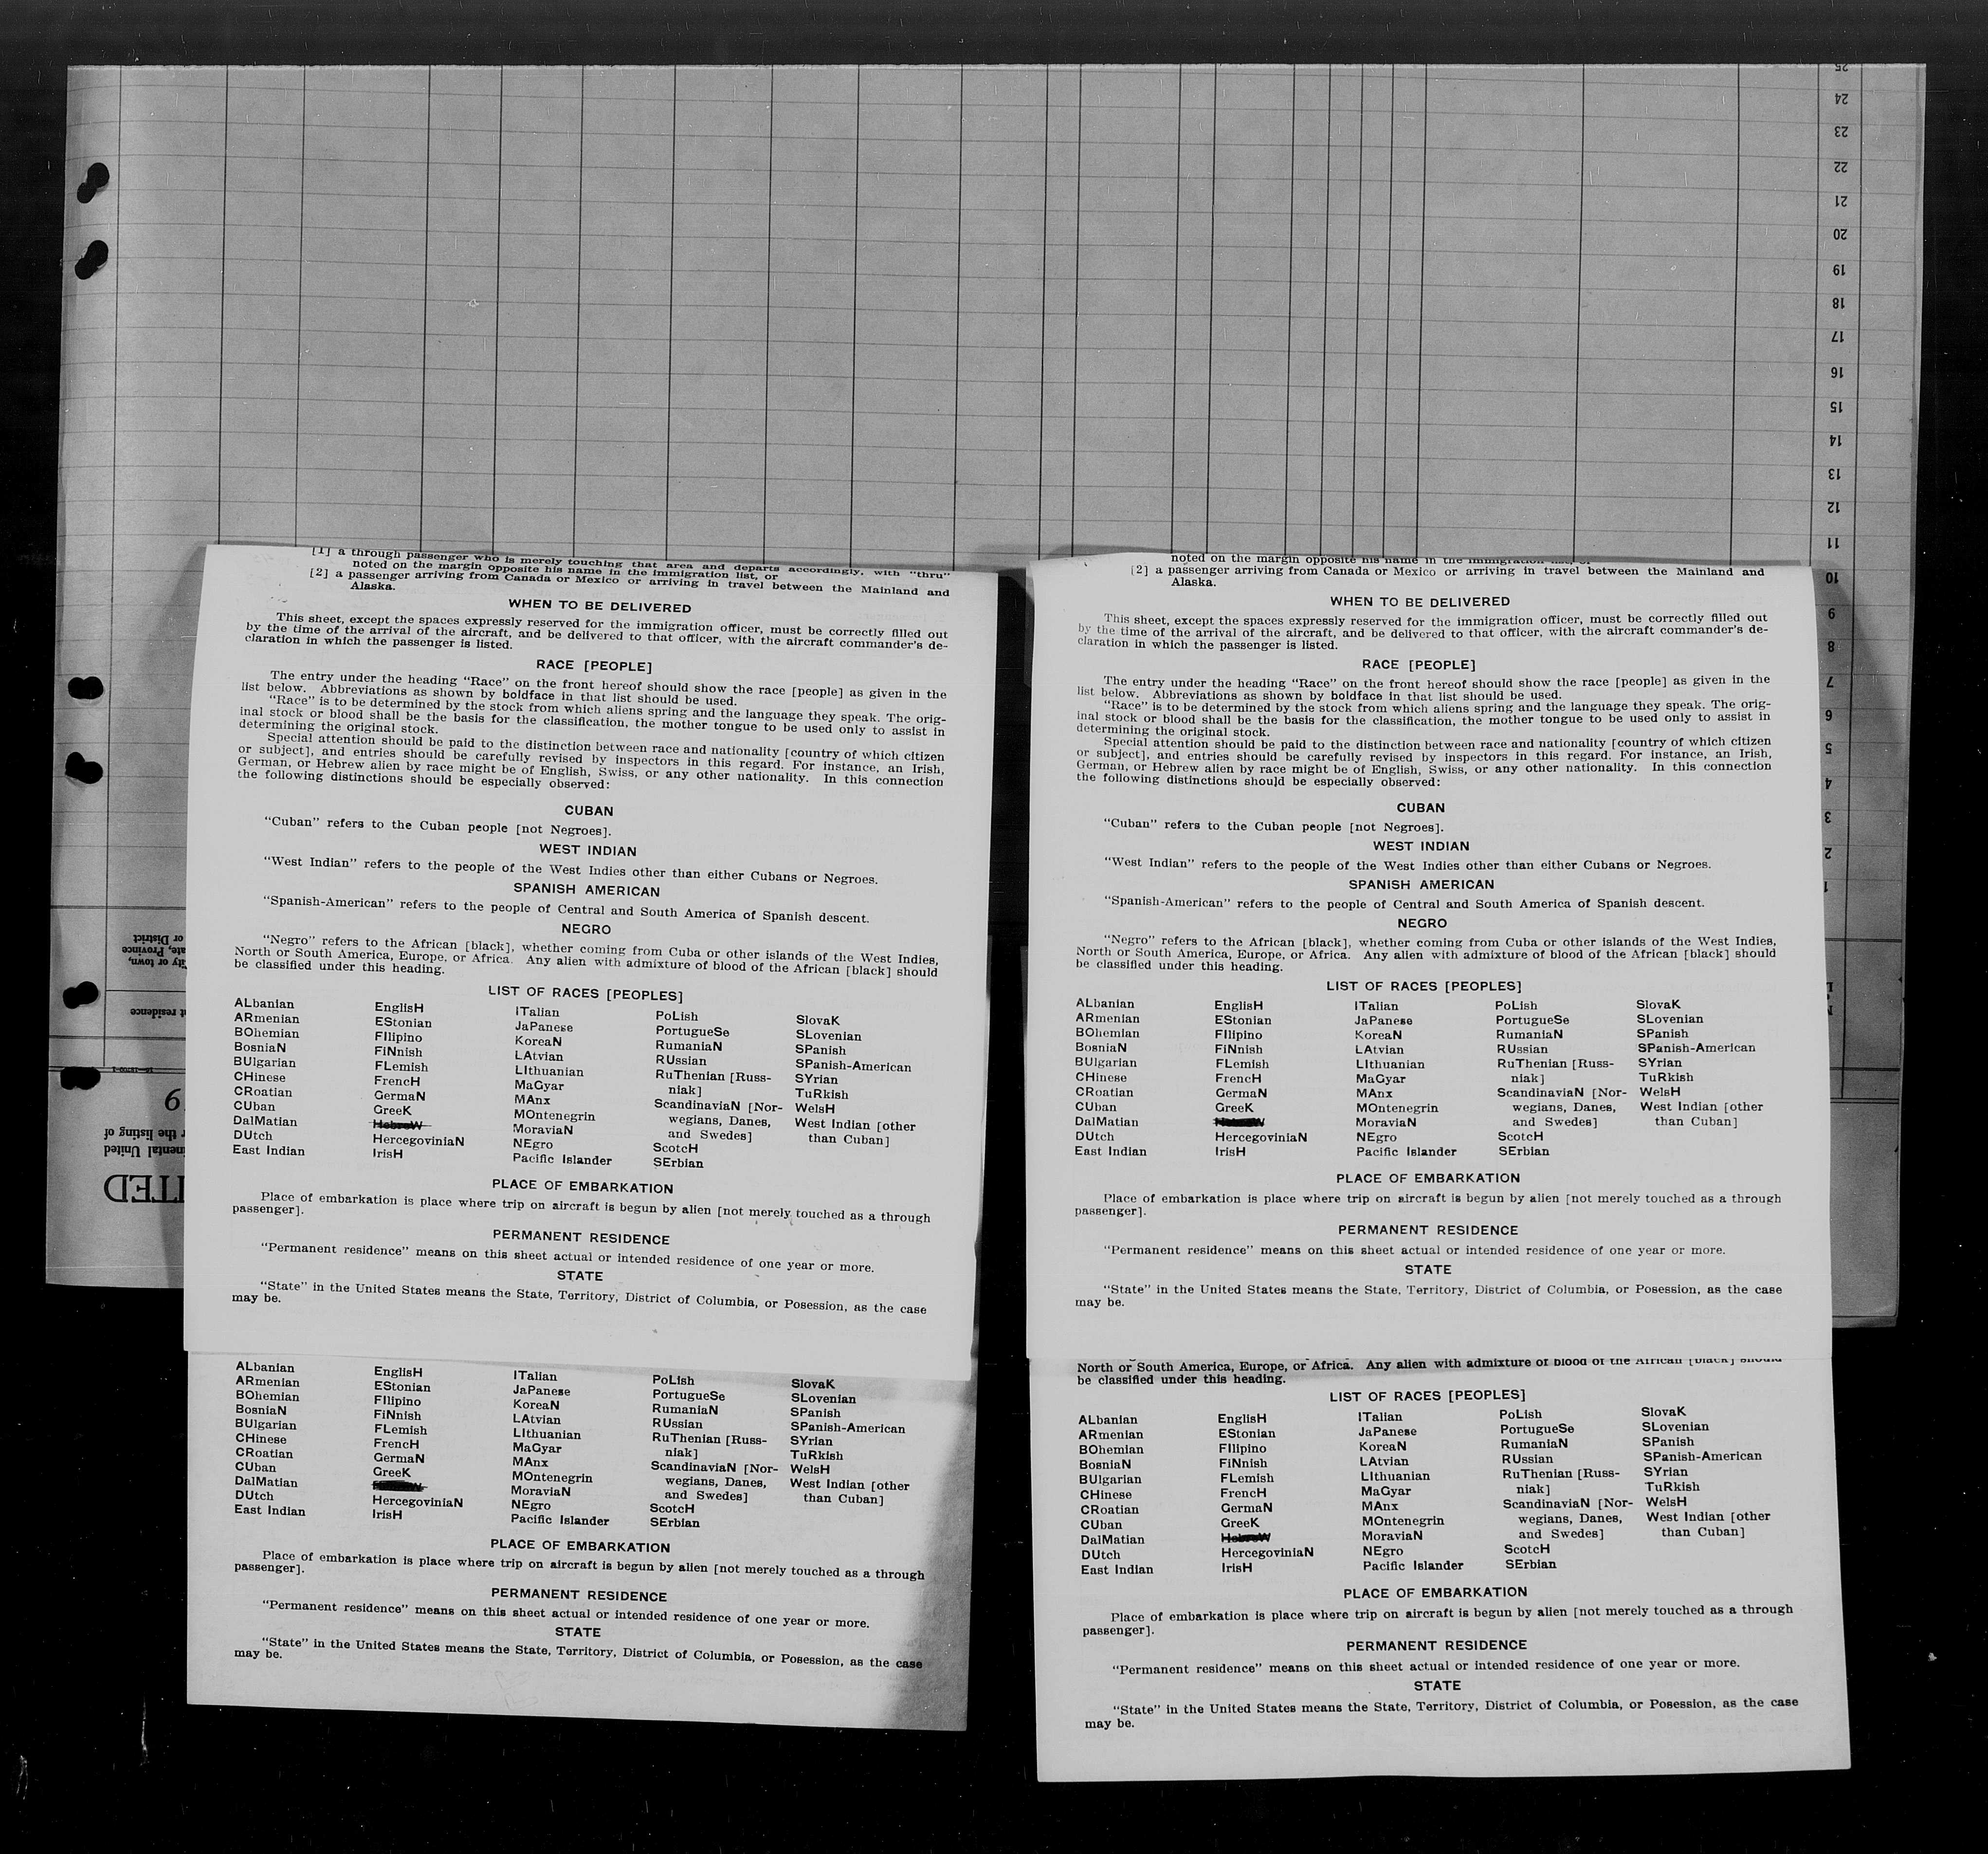 25
24
23
22
21
20
19
18
17
16
15
14
13
12
11
10
9
8
7
6
5
4
3
2
1
or District
Province
City or town,
residence
the listing of
United
[1] a through passenger who is merely touching that area and departs accordingly, with "thru"
noted on the margin opposite his name in the immigration list, or
[2] a passenger arriving from Canada or Mexico or arriving in travel between the Mainland and
Alaska.
WHEN TO BE DELIVERED
This sheet, except the spaces expressly reserved for the immigration officer, must be correctly filled out
by the time of the arrival of the aircraft, and be delivered to that officer, with the aircraft commander's de-
claration in which the passenger is listed.
RACE [PEOPLE]
The entry under the heading "Race" on the front hereof should show the race [people] as given in the
list below. Abbreviations as shown by boldface in that list should be used.
"Race" is to be determined by the stock from which aliens spring and the language they speak. The orig-
inal stock or blood shall be the basis for the classification, the mother tongue to be used only to assist in
determining the original stock.
Special attention should be paid to the distinction between race and nationality [country of which citizen
or subject], and entries should be carefully revised by inspectors in this regard. For instance, an Irish,
German, or Hebrew alien by race might be of English, Swiss, or any other nationality. In this connection
the following distinctions should be especially observed:
CUBAN
"Cuban" refers to the Cuban people [not Negroes].
WEST INDIAN
"West Indian" refers to the people of the West Indies other than either Cubans or Negroes.
SPANISH AMERICAN
"Spanish-American" refers to the people of Central and South America of Spanish descent.
NEGRO
"Negro" refers to the African [black], whether coming from Cuba or other islands of the West Indies,
North or South America, Europe, or Africa. Any alien with admixture of blood of the African [black] should
be classified under this heading.
LIST OF RACES [PEOPLES]
ALbanian
ARmenian
BOhemian
BosniaN
BUlgarian
CHinese
CRoatian
CUban
DalMatian
DUtch
East Indian
EnglisH
EStonian
FIlipino
FiNnish
FLemish
FrencH
GermaN
GreeK
HebreW
HercegoviniaN
IrisH
ITalian
JaPanese
KoreaN
LAtvian
LIthuanian
MaGyar
MAnx
MOntenegrin
MoraviaN
NEgro
Pacific Islander
PoLish
PortugueSe
RumaniaN
RUssian
RuThenian [Russ-
niak]
ScandinaviaN [Nor-
wegians, Danes,
and Swedes]
ScotcH
SErbian
SlovaK
SLovenian
SPanish
SPanish-American
SYrian
TuRkish
WelsH
West Indian [other
than Cuban]
PLACE OF EMBARKATION
Place of embarkation is place where trip on aircraft is begun by alien [not merely touched as a through
passenger].
PERMANENT RESIDENCE
"Permanent residence" means on this sheet actual or intended residence of one year or more.
STATE
"State" in the United States means the State, Territory, District of Columbia, or Posession, as the case
may be.
ALbanian
ARmenian
BOhemian
BosniaN
BUlgarian
CHinese
CRoatian
CUban
DalMatian
DUtch
East Indian
EnglisH
EStonian
FIlipino
FiNnish
FLemish
FrencH
GermaN
GreeK
HercegoviniaN
IrisH
ITalian
JaPanese
KoreaN
LAtvian
LIthuanian
MaGyar
MAnx
MOntenegrin
MoraviaN
NEgro
Pacific Islander
PoLish
PortugueSe
RumaniaN
RUssian
RuThenian [Russ-
niak]
ScandinaviaN [Nor-
wegians, Danes,
and Swedes]
ScotcH
SErbian
SlovaK
SLovenian
SPanish
SPanish-American
SYrian
TuRkish
WelsH
West Indian [other
than Cuban]
PLACE OF EMBARKATION
Place of embarkation is place where trip on aircraft is begun by alien [not merely touched as a through
passenger].
PERMANENT RESIDENCE
"Permanent residence" means on this sheet actual or intended residence of one year or more.
STATE
"State" in the United States means the State, Territory, District of Columbia, or Posession, as the case
may be.
noted on the margin opposite his name in the immigration list, or
[2] a passenger arriving from Canada or Mexico or arriving in travel between the Mainland and
Alaska.
WHEN TO BE DELIVERED
This sheet, except the spaces expressly reserved for the immigration officer, must be correctly filled out
by the time of the arrival of the aircraft, and be delivered to that officer, with the aircraft commander's de-
claration in which the passenger is listed.
RACE [PEOPLE]
The entry under the heading "Race" on the front hereof should show the race [people] as given in the
list below. Abbreviations as shown by boldface in that list should be used.
"Race" is to be determined by the stock from which aliens spring and the language they speak. The orig-
inal stock or blood shall be the basis for the classification, the mother tongue to be used only to assist in
determining the original stock.
Special attention should be paid to the distinction between race and nationality [country of which citizen
or subject], and entries should be carefully revised by inspectors in this regard. For instance, an Irish,
German, or Hebrew alien by race might be of English, Swiss, or any other nationality. In this connection
the following distinctions should be especially observed:
CUBAN
"Cuban" refers to the Cuban people [not Negroes].
WEST INDIAN
"West Indian" refers to the people of the West Indies other than either Cubans or Negroes.
SPANISH AMERICAN
"Spanish-American" refers to the people of Central and South America of Spanish descent.
NEGRO
"Negro" refers to the African [black], whether coming from Cuba or other islands of the West Indies,
North or South America, Europe, or Africa. Any alien with admixture of blood of the African [black] should
be classified under this heading.
LIST OF RACES [PEOPLES]
ALbanian
ARmenian
BOhemian
BosniaN
BUlgarian
CHinese
CRoatian
CUban
DalMatian
DUtch
East Indian
EnglisH
EStonian
FIlipino
FiNnish
FLemish
FrencH
GermaN
GreeK
HebreW
HercegoviniaN
IrisH
ITalian
JaPanese
KoreaN
LAtvian
LIthuanian
MaGyar
MAnx
MOntenegrin
MoraviaN
NEgro
Pacific Islander
PoLish
PortugueSe
RumaniaN
RUssian
RuThenian [Russ-
niak]
ScandinaviaN [Nor-
wegians, Danes,
and Swedes]
ScotcH
SErbian
SlovaK
SLovenian
SPanish
SPanish-American
SYrian
TuRkish
WelsH
West Indian [other
than Cuban]
PLACE OF EMBARKATION
Place of embarkation is place where trip on aircraft is begun by alien [not merely touched as a through
passenger].
PERMANENT RESIDENCE
"Permanent residence" means on this sheet actual or intended residence of one year or more.
STATE
"State" in the United States means the State, Territory, District of Columbia, or Posession, as the case
may be.
North or South America, Europe, or Africa. Any alien with admixture of blood of the African [black] should
be classified under this heading.
LIST OF RACES [PEOPLES]
ALbanian
ARmenian
BOhemian
BosniaN
BUlgarian
CHinese
CRoatian
CUban
DalMatian
DUtch
East Indian
EnglisH
EStonian
FIlipino
FiNnish
FLemish
FrencH
GermaN
GreeK
HebreW
HercegoviniaN
IrisH
ITalian
JaPanese
KoreaN
LAtvian
LIthuanian
MaGyar
MAnx
MOntenegrin
MoraviaN
NEgro
Pacific Islander
PoLish
PortugueSe
RumaniaN
RUssian
RuThenian [Russ-
niak]
ScandinaviaN [Nor-
wegians, Danes,
and Swedes]
ScotcH
SErbian
SlovaK
SLovenian
SPanish
SPanish-American
SYrian
TuRkish
WelsH
West Indian [other
than Cuban]
PLACE OF EMBARKATION
Place of embarkation is place where trip on aircraft is begun by alien [not merely touched as a through
passenger].
PERMANENT RESIDENCE
"Permanent residence" means on this sheet actual or intended residence of one year or more.
STATE
"State" in the United States means the State, Territory, District of Columbia, or Posession, as the case
may be.